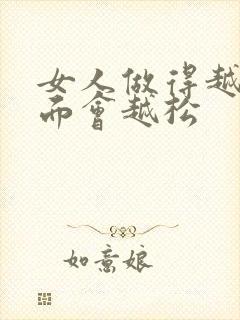 女人做得越
而會越松
如意娘